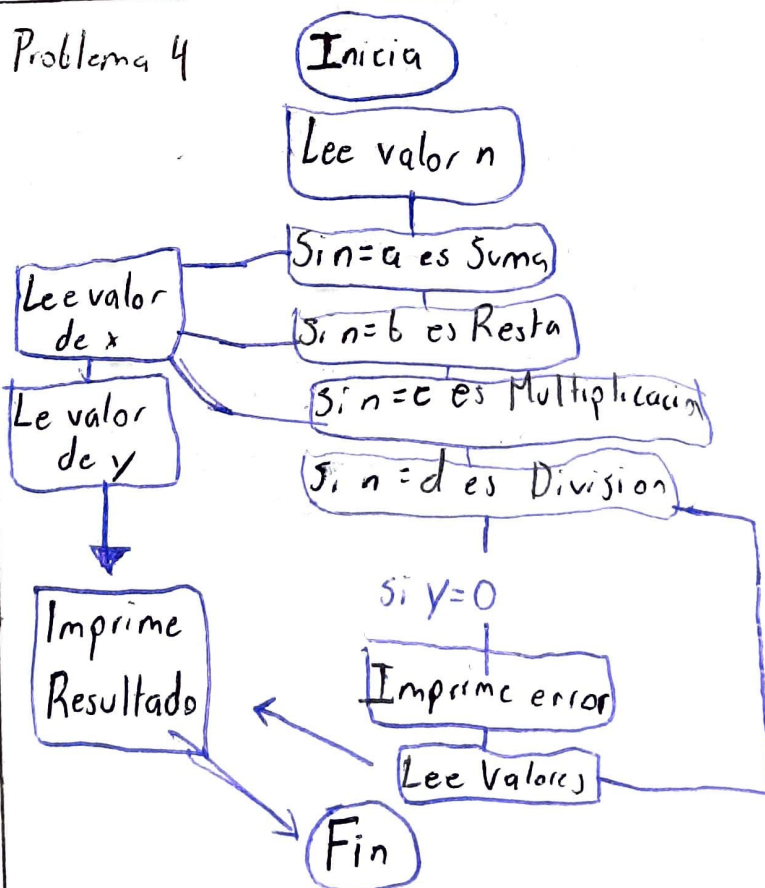 Problema 4
Inicia
Lee valor n
Si n=a es Suma
Si n=b es Resta
Si n=c es Multiplicación
Si n=d es Division
Lee valor
de x
Le valor
de y
Si y=0
Imprime error
Lee Valores
Imprime
Resultado
Fin